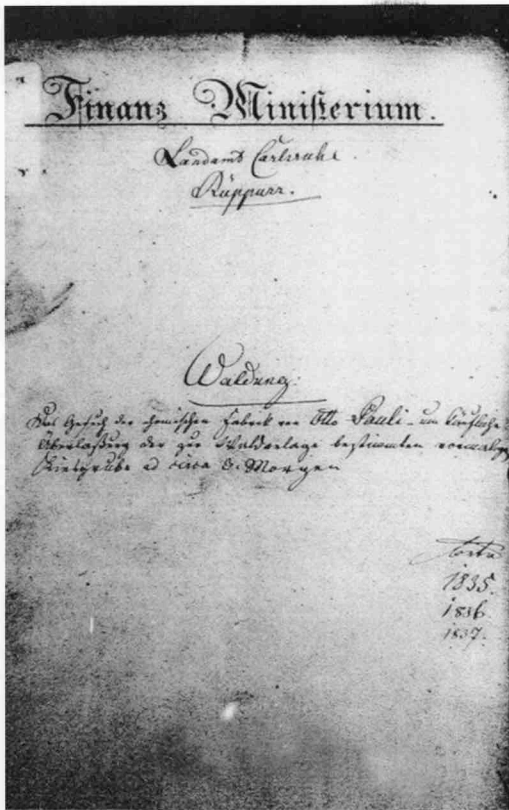 Finanz Ministerium.
Landamt Carlsruhe.
Rüppurr.
Waldung.
Das Gesuch der chemischen Fabrik von Otto Pauli um käufliche
Überlaßung der zur Waldanlage bestimmten vormaligen
Kiesgrube ad circa Morgen
1835.
1836.
1837.